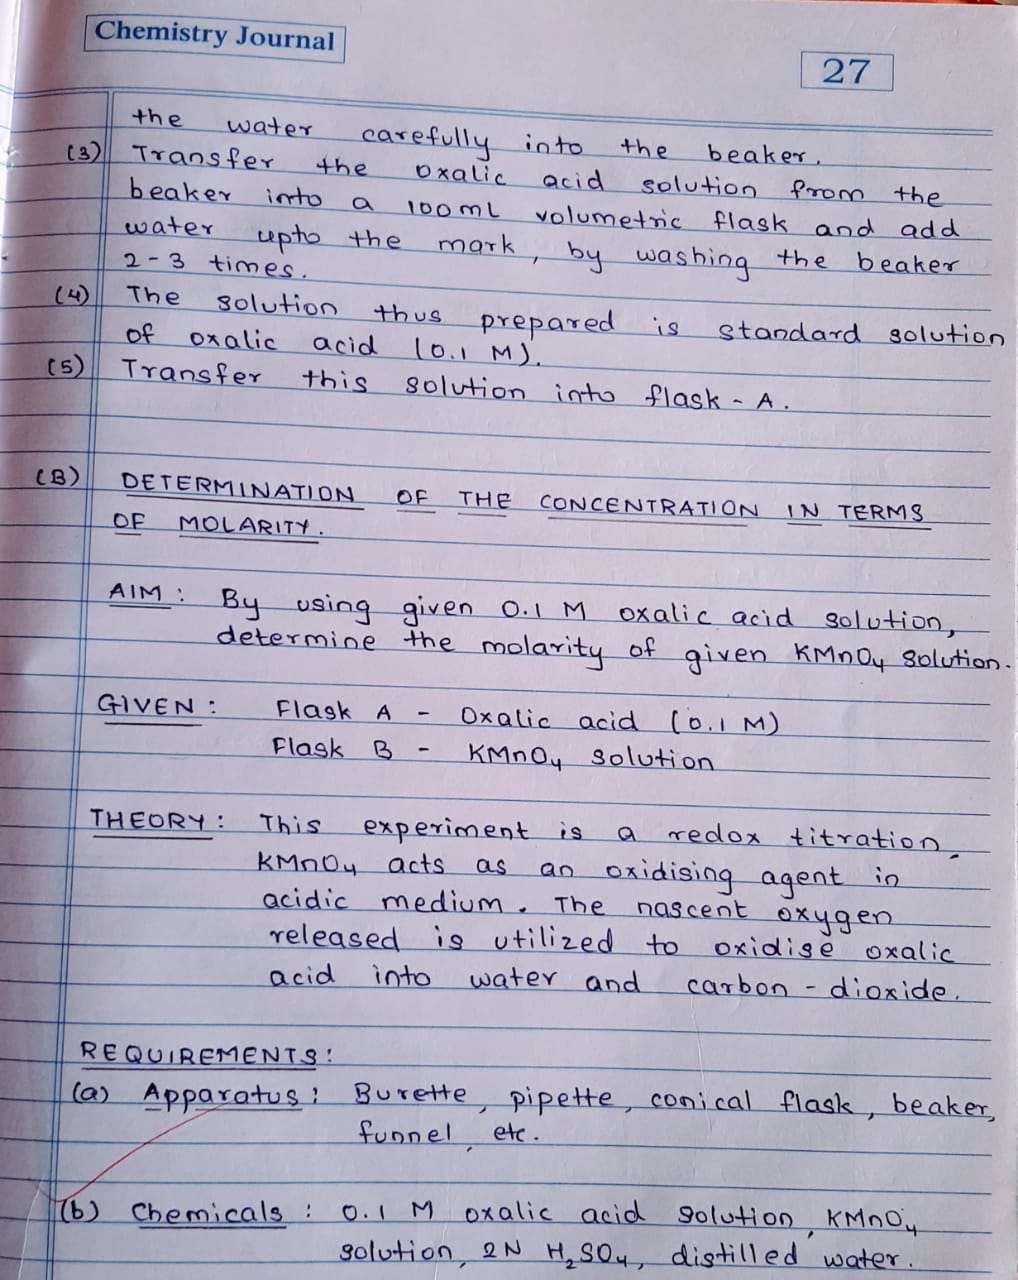 Chemistry Journal
27
the water carefully into the beaker.
(3) Transfer the oxalic acid solution from the
beaker into a 100 mL volumetric flask and add
water upto the mark, by washing the beaker
2-3 times.
(4) The solution thus prepared is standard solution
of oxalic acid (0.1 M).
(5) Transfer this solution into flask - A.
(B) DETERMINATION OF THE CONCENTRATION IN TERMS
OF MOLARITY.
AIM : By using given 0.1 M oxalic acid solution,
determine the molarity of given KMnO₄ solution.
GIVEN : Flask A - Oxalic acid (0.1 M)
Flask B - KMnO₄ solution
THEORY : This experiment is a redox titration.
KMnO₄ acts as an oxidising agent in
acidic medium. The nascent oxygen
released is utilized to oxidise oxalic
acid into water and carbon - dioxide.
REQUIREMENTS :
(a) Apparatus : Burette, pipette, conical flask, beaker,
funnel, etc.
(b) Chemicals : 0.1 M oxalic acid solution, KMnO₄
solution, 2N H₂SO₄, distilled water.